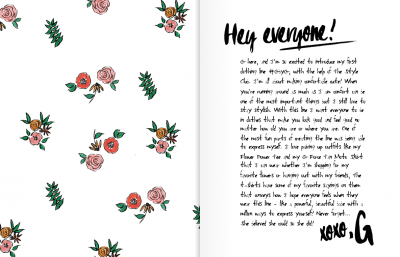 Hey everyone!
G here, and I'm so excited to introduce my first
clothing line, with the help of The Style
Club. I'm all about making comfortable cute! When
you're running around as much as I am comfort can be
one of the most important things but I still love to
stay stylish. With this line I want everyone to be
in clothes that make you look good and feel good no
matter how old you are or where you are. One of
the most fun parts of creating this line was being able
to express myself. I love pairing up outfits like my
Flower Power Tee and my G Force 1 in Moto Skirt
that I can wear whether I'm shopping for my
favorite flowers or hanging out with my friends. The
t-shirts have some of my favorite sayings on them
that convey how I hope everyone feels when they
wear this line - like a powerful, beautiful babe with a
million ways to express yourself! Never forget...
She believed she could so she did!
xoxo, G